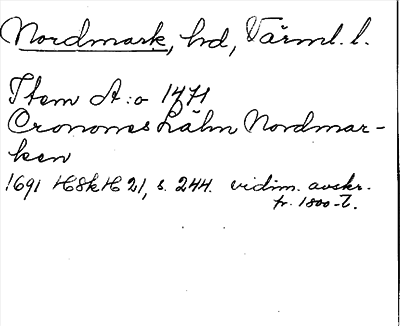 Nordmark, hd, Värml. l.
Item A:o 1471
Cronones Lähn Nordmar-
ken
1691 HSkH 21, s. 244. vidim. avskr.
fr. 1800-t.